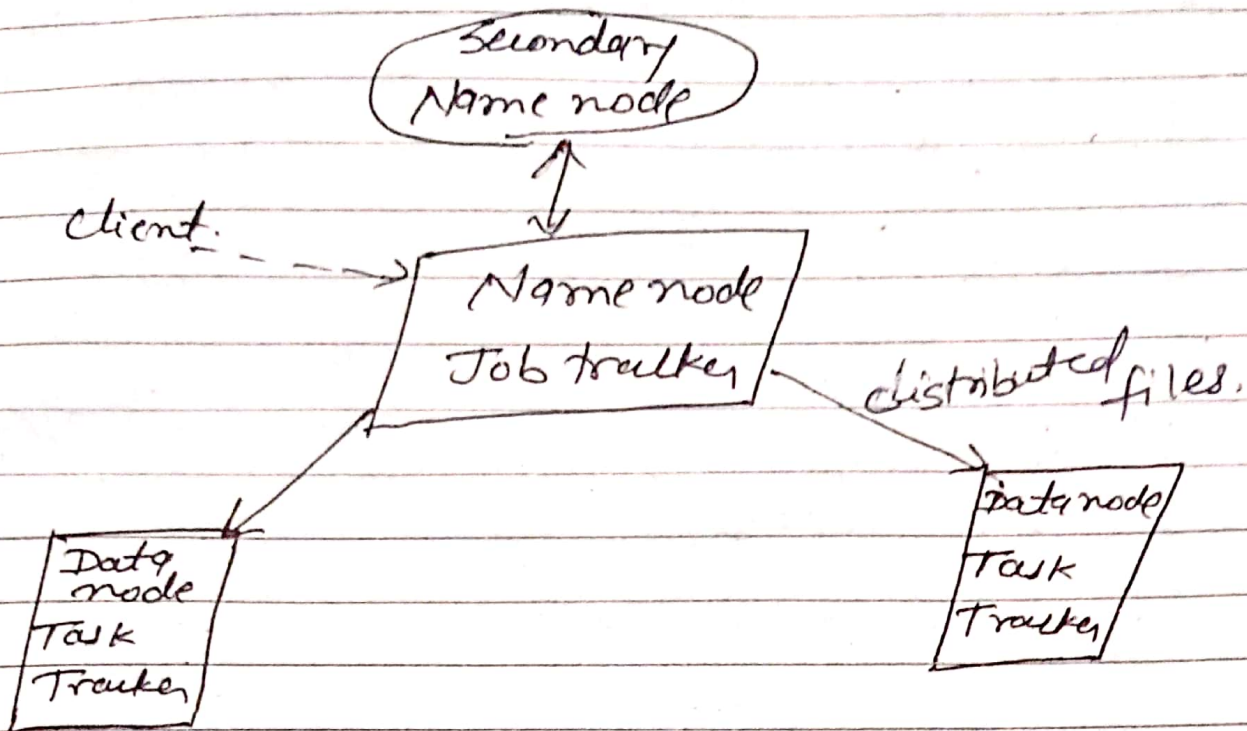 Secondary
Name node
Client.
Name node
Job tracker
distributed files.
Data node
Task
Tracker
Data
node
Task
Tracker